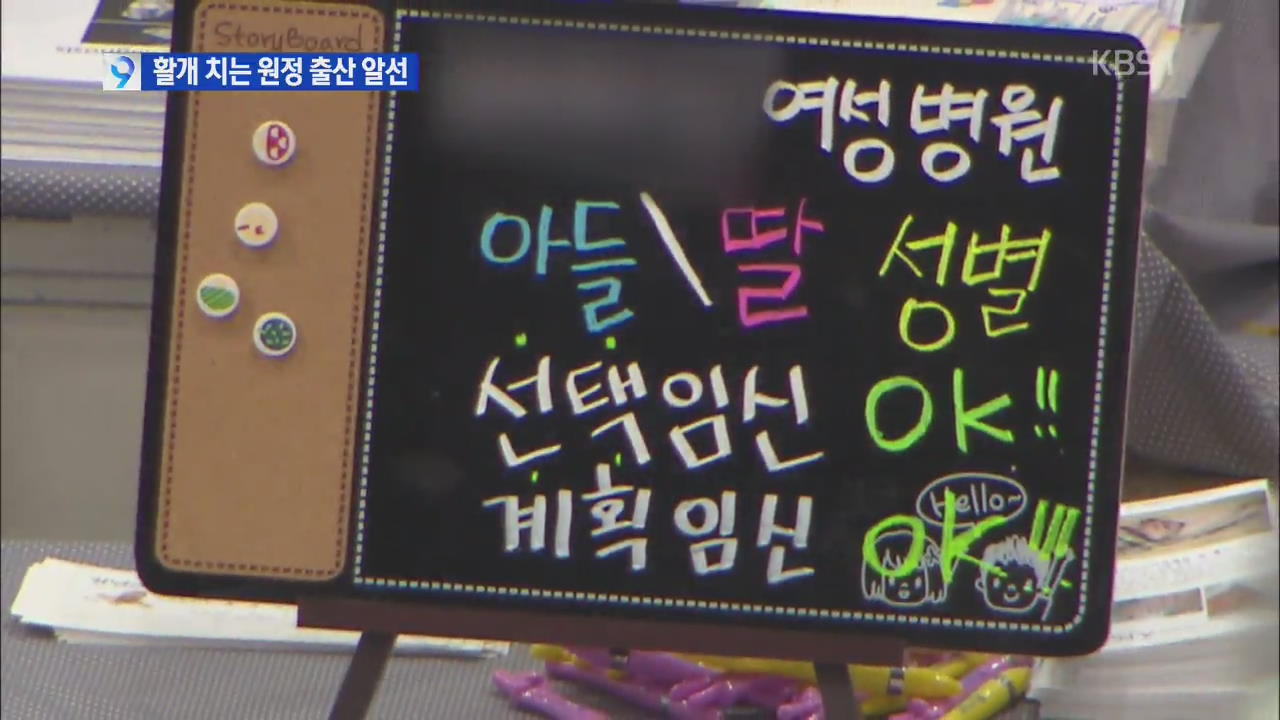 StoryBoard
9 활개 치는 원정 출산 알선
KBS 1
여성병원
아들\딸 성별
선택임신 OK!!
계획임신 OK!!!
Hello~